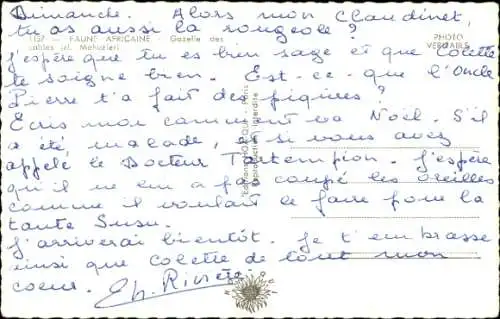 Dimanche. Alors mon Claudinet,
tu as aussi la rougeole ?
137 - FAUNE AFRICAINE - Gazelle des
sables
PHOTO
VERITABLE
j'espère que tu es bien sage et que Colette
te soigne bien. Est-ce-que l'Oncle
Pierre t'a fait des piqûres ?
Ecris moi comment va Noël. S'il
a été malade, et si vous avez
appelé le Docteur Tartempion. J'espère
qu'il ne lui a pas coupé les oreilles
comme il voulait le faire pour la
tante Susu.
J'arriverai bientôt. Je t'embrasse
ainsi que Colette de tout mon
coeur.
Reproduction interdite